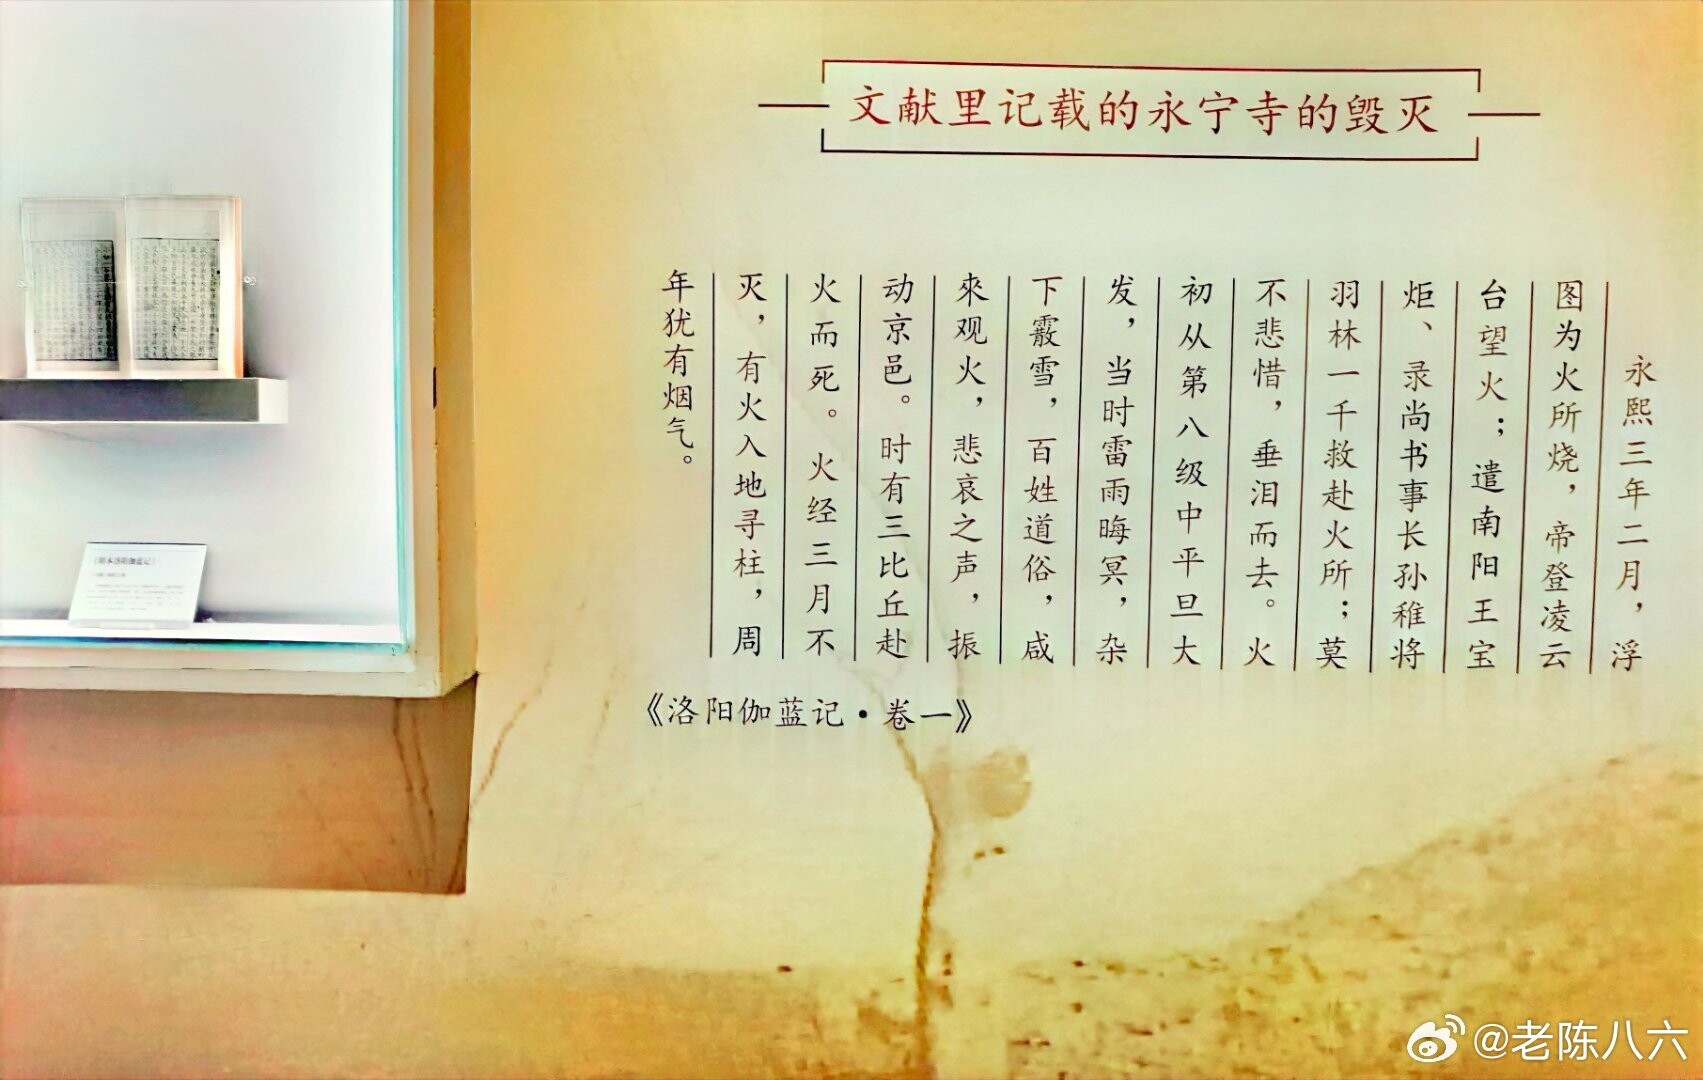 文献里记载的永宁寺的毁灭
永熙三年二月，浮
图为火所烧，帝登凌云
台望火；遣南阳王宝
炬、录尚书事长孙稚将
羽林一千救赴火所；莫
不悲惜，垂泪而去。火
初从第八级中平旦大
发，当时雷雨晦冥，杂
下霰雪，百姓道俗，咸
來观火，悲哀之声，振
动京邑。时有三比丘赴
火而死。火经三月不
灭，有火入地寻柱，周
年犹有烟气。
《洛阳伽蓝记·卷一》
@老陈八六